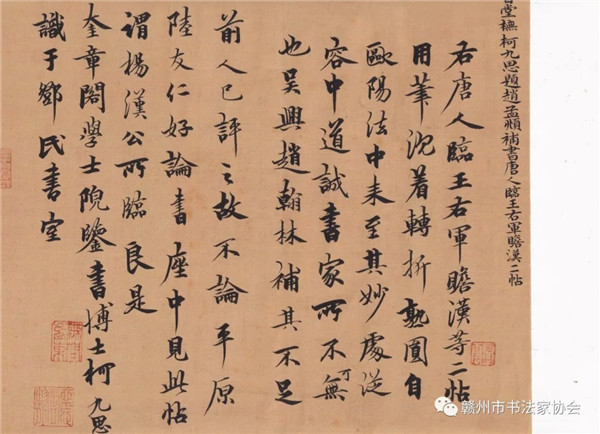 堂橅柯九思題趙孟頫補書唐人臨王右軍瞻漢二帖
右唐人臨王右軍瞻漢等二帖
用筆沉着轉折熟圓自
歐陽法中来至其妙處從
容中道誠書家所不可無
也吳興趙翰林補其不足
前人已評之故不論平原
陸友仁好論書座中見此帖
謂楊漢公所臨良是
奎章閣學士院鑒書博士柯九思
識于鄧民書室
赣州市书法家协会